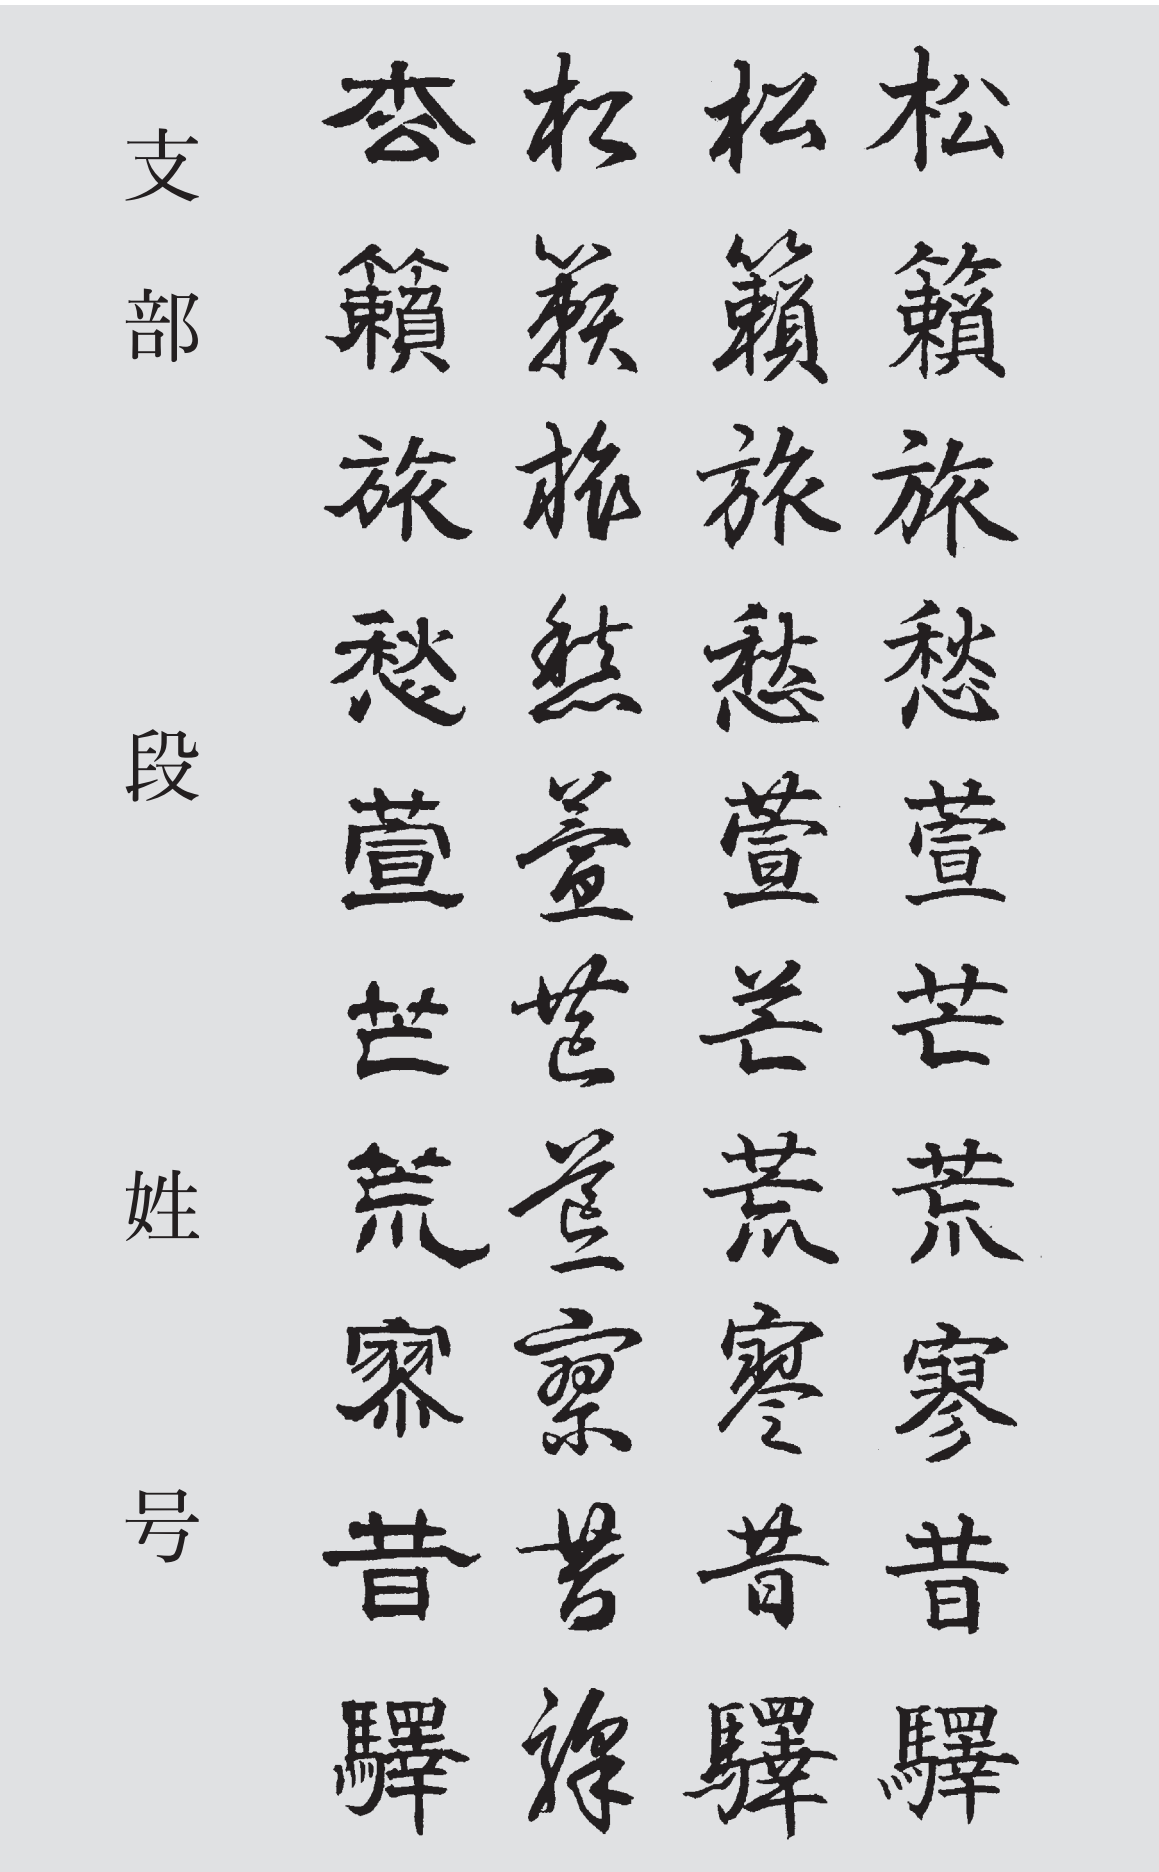 松籟旅愁萱芒荒寥昔驛
松籟旅愁萱芒荒寥昔驛
松籟旅愁萱芒荒寥昔驛
枩籟旅愁萱芒荒寥昔驛
支部　段　姓号